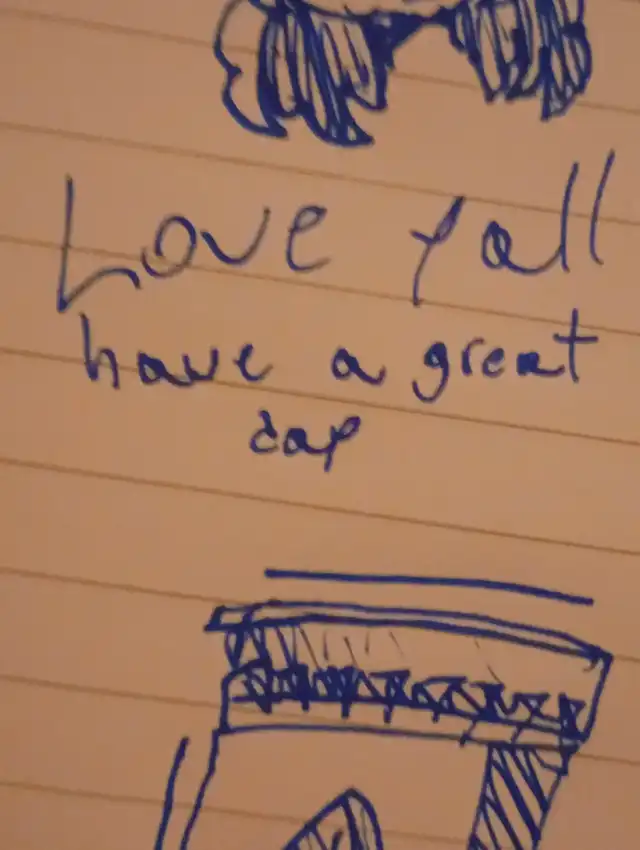 Love yall
have a great
day